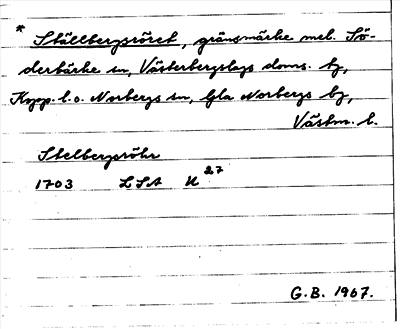 * Ställbergsröret, gränsmärke mel. Sö-
derbärke sn, Västerbergslags doms. by,
Kopp. l. o. Norbergs sn, Gla Norbergs by,
Västm. l.
Stelbergsröhr
1703 LSA U 27
G.B. 1967.